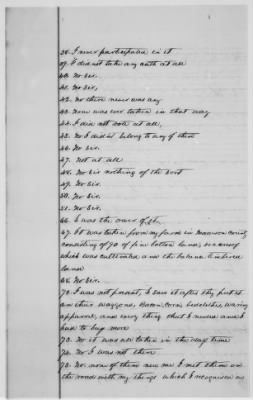 38. I never participated in it
39. I did not take any oath at all
40. No Sir.
41. No Sir,
42. No there never was any
43. None was ever taken in that way
44. I did not vote at all,
45. No I did not belong to any of them
46. No Sir.
47. Not at all
48. No Sir nothing of the sort
49. No Sir
50. No Sir.
51. No Sir.
66. I was the owner of
67. It was taken from my farm in County,
consisting of 70 of fine bottom land,
which was cultivated and the balance timbered
land
68. No Sir.
70. I was not present, I saw it after they put it
in their wagons, Bacon, Corn, bedclothes, wearing
apparel, and every thing that I needed and I
had to buy more
73. No it was not taken in the day time
74. No I was not there
75. No none of them saw me I met them on
the road with my things which I recognized as